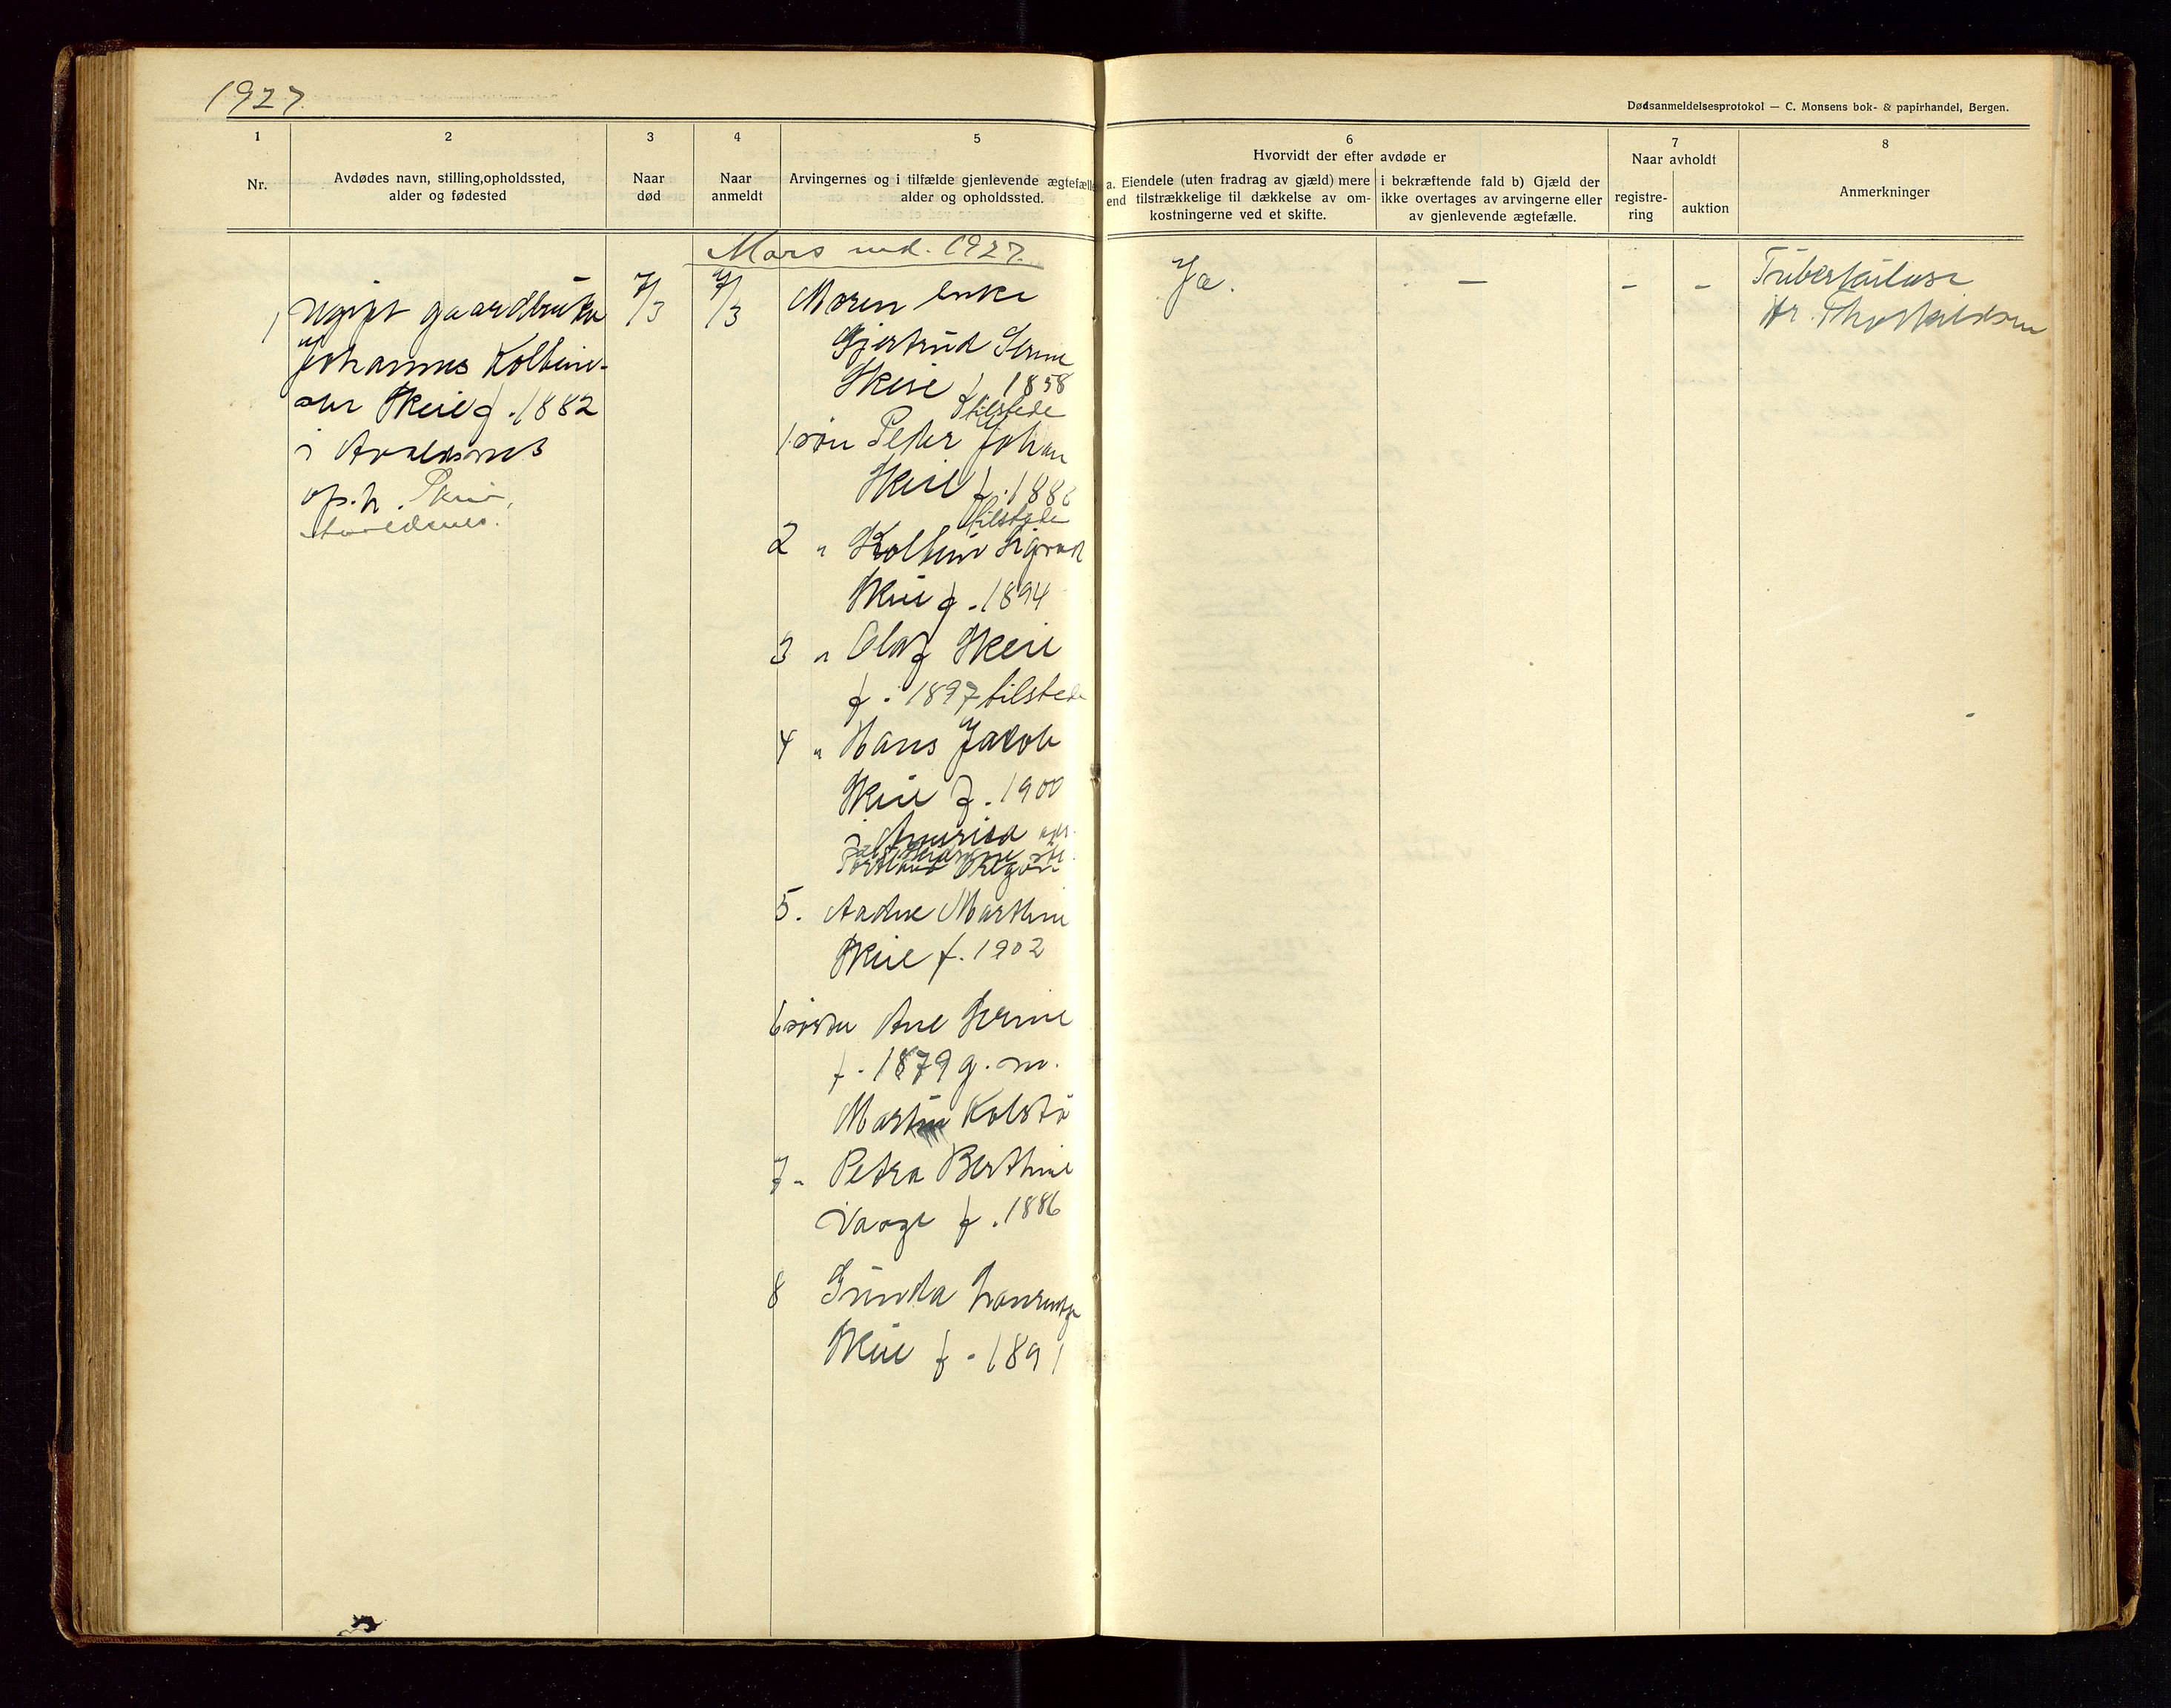 1927
Dødsanmeldelsesprotokol — C. Monsens bok- & papirhandel, Bergen.
1
2
3
4
5
6
7
8
Nr.
Avdødes navn, stilling, opholdssted,
alder og fødested
Naar
død
Naar
anmeldt
Arvingernes og i tilfælde gjenlevende ægtefælle
alder og opholdssted.
Hvorvidt der efter avdøde er
a. Eiendele (uten fradrag av gjæld) mere
end tilstrækkelige til dækkelse av om-
kostningerne ved et skifte.
i bekræftende fald b) Gjæld der
ikke overtages av arvingerne eller
av gjenlevende ægtefælle.
Naar avholdt
registre-
ring
auktion
Anmerkninger
Mars md. 1927.
1
Ugift gaardbruker
Johannes Kolbein-
sen Skeie f. 1882
i Avaldsnes
op.h. Skeie,
Avaldsnes.
7/3
7/3
Moren enke
Gjertrud Serine
Skeie f. 1858
tilstede
1. søn Peder Johan
Skeie f. 188
tilstede
2 " Kolbein Sigvad
Skeie f. 1894
3 " Olaf Skeie
f. 1897 tilstede
4 " Hans Jakob
Skeie f. 1900
i Amerika adr.
Portland Oregon
5. Aadne Marthin
Skeie f. 1902
6 søster Ane Serine
f. 1879 g. m.
Martin Kolstø
7 " Petra Berthine
Vaage f. 1886
8 Gunda
Skeie f. 1891
Ja.
—
-
-
Tuberkulose
dr. Thorkildsen